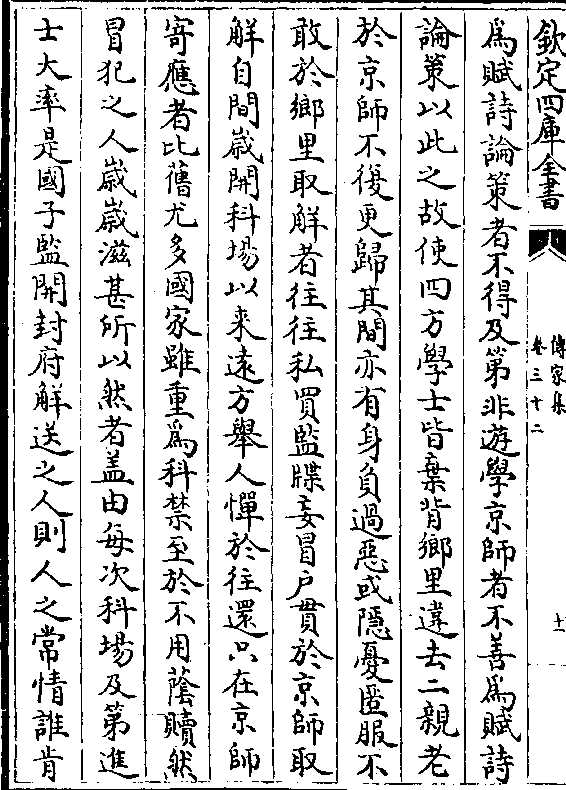 欽定四庫全書
傳家集
卷三十二
十一
爲賦詩論策者不得及第非遊學京師者不善爲賦詩
論策以此之故使四方學士皆棄背鄉里違去二親老
於京師不復更歸其間亦有身負過惡或隱憂匿服不
敢於鄉里取解者往往私買監牒妄冒户貫於京師取
解自間歲開科場以来遠方舉人憚於往還只在京師
寄應者比舊尤多國家雖重爲科禁至於不用蔭贖然
冒犯之人歲歲滋甚所以然者盖由每次科場及第進
士大率是國子監開封府解送之人則人之常情誰肯